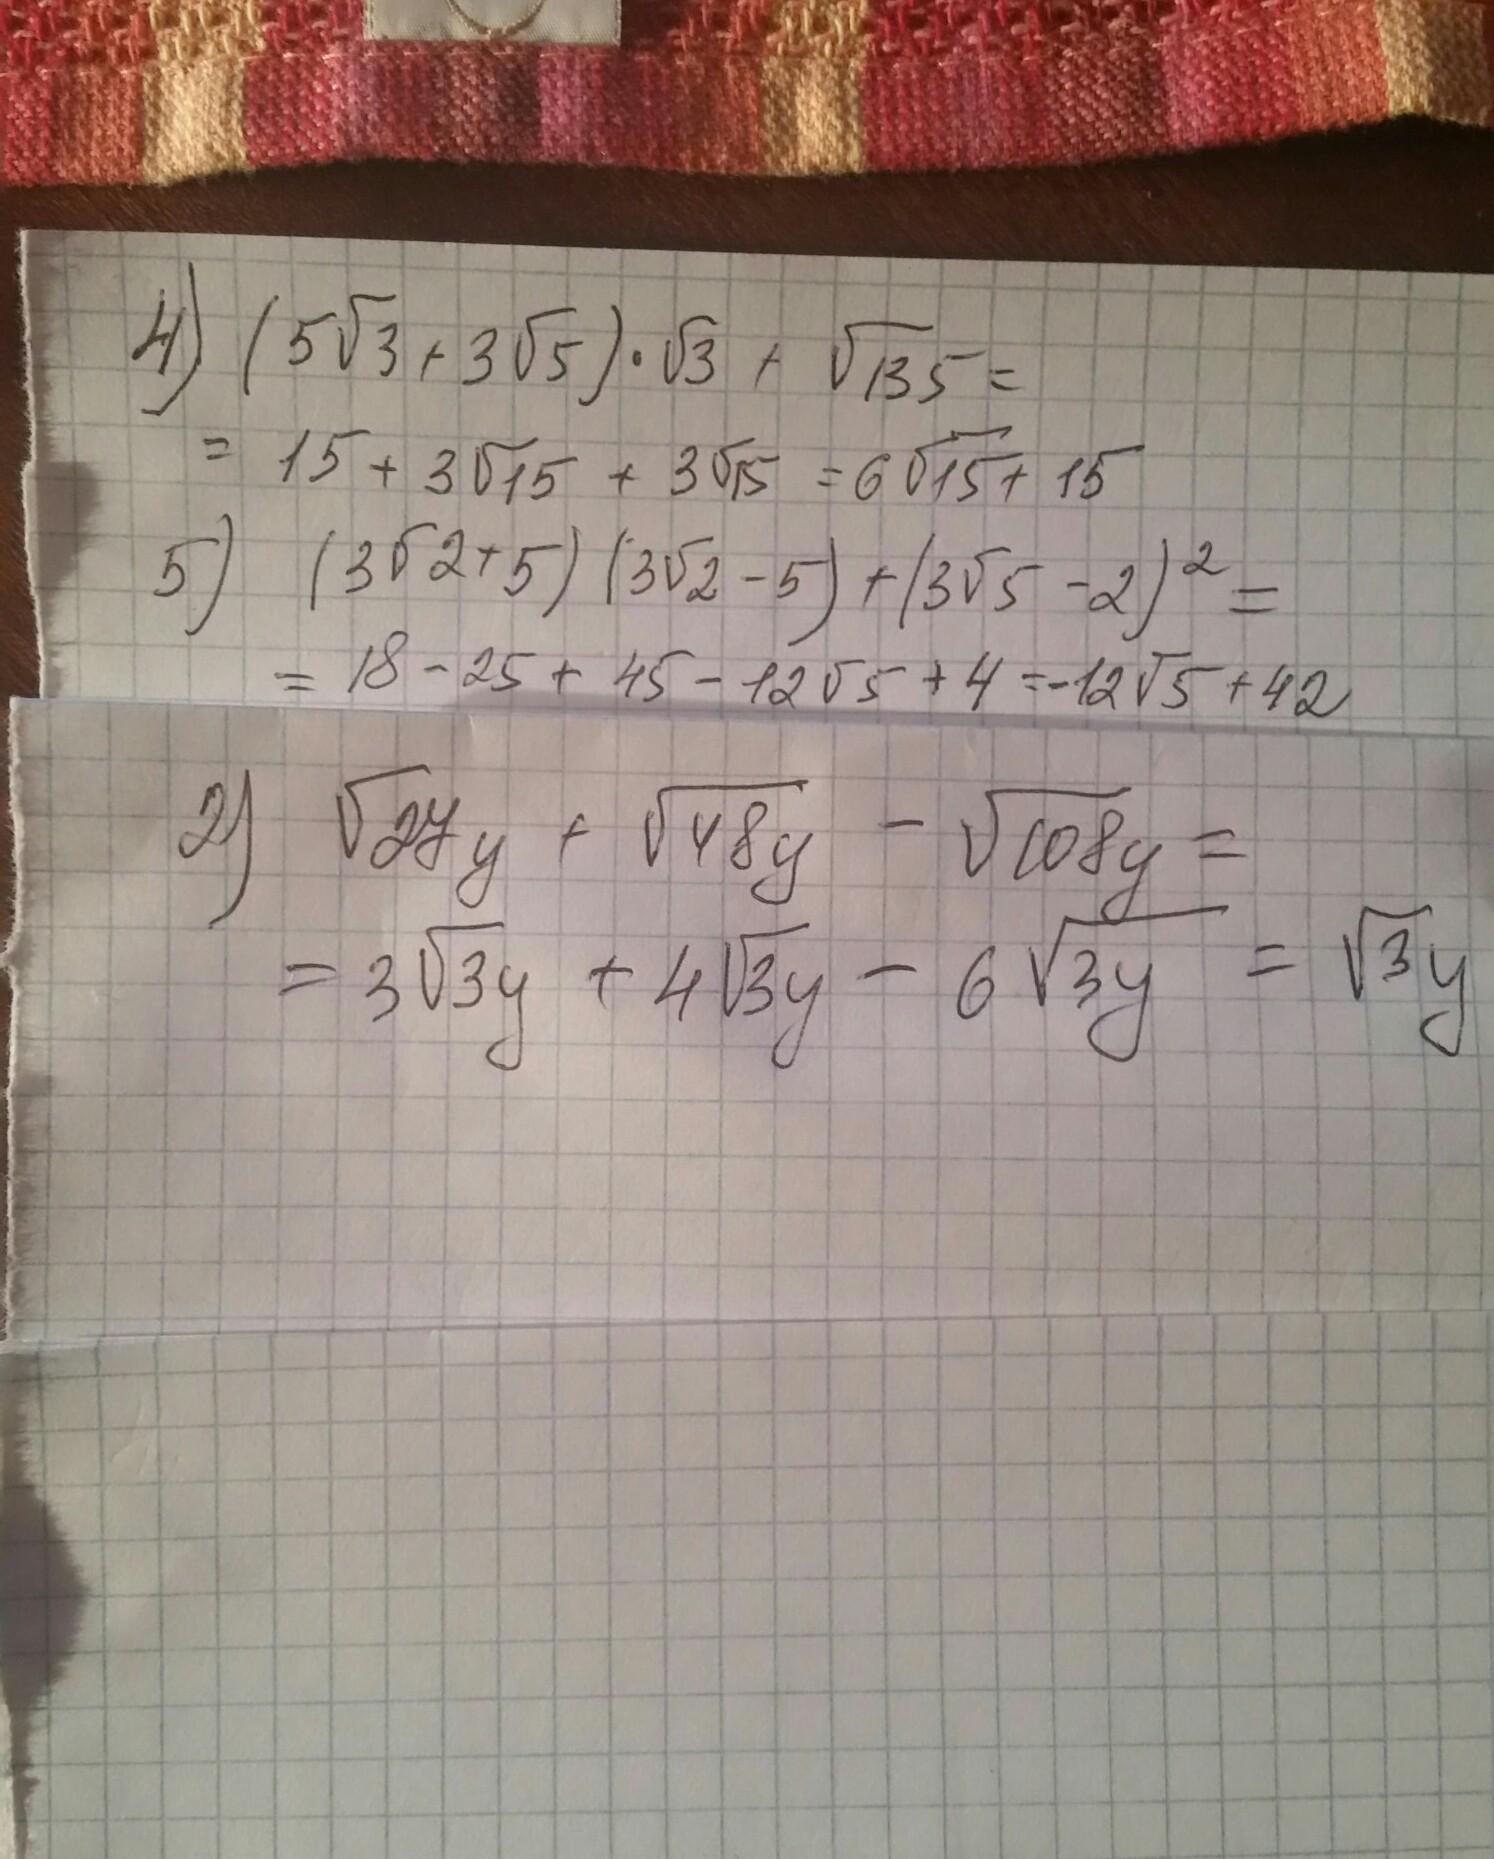 4) (5√3 + 3√5) · √3 + √135 =
= 15 + 3√15 + 3√15 = 6√15 + 15
5) (3√2 + 5) (3√2 - 5) + (3√5 - 2)² =
= 18 - 25 + 45 - 12√5 + 4 = -12√5 + 42
2) √27y + √48y - √108y =
= 3√3y + 4√3y - 6√3y = √3y